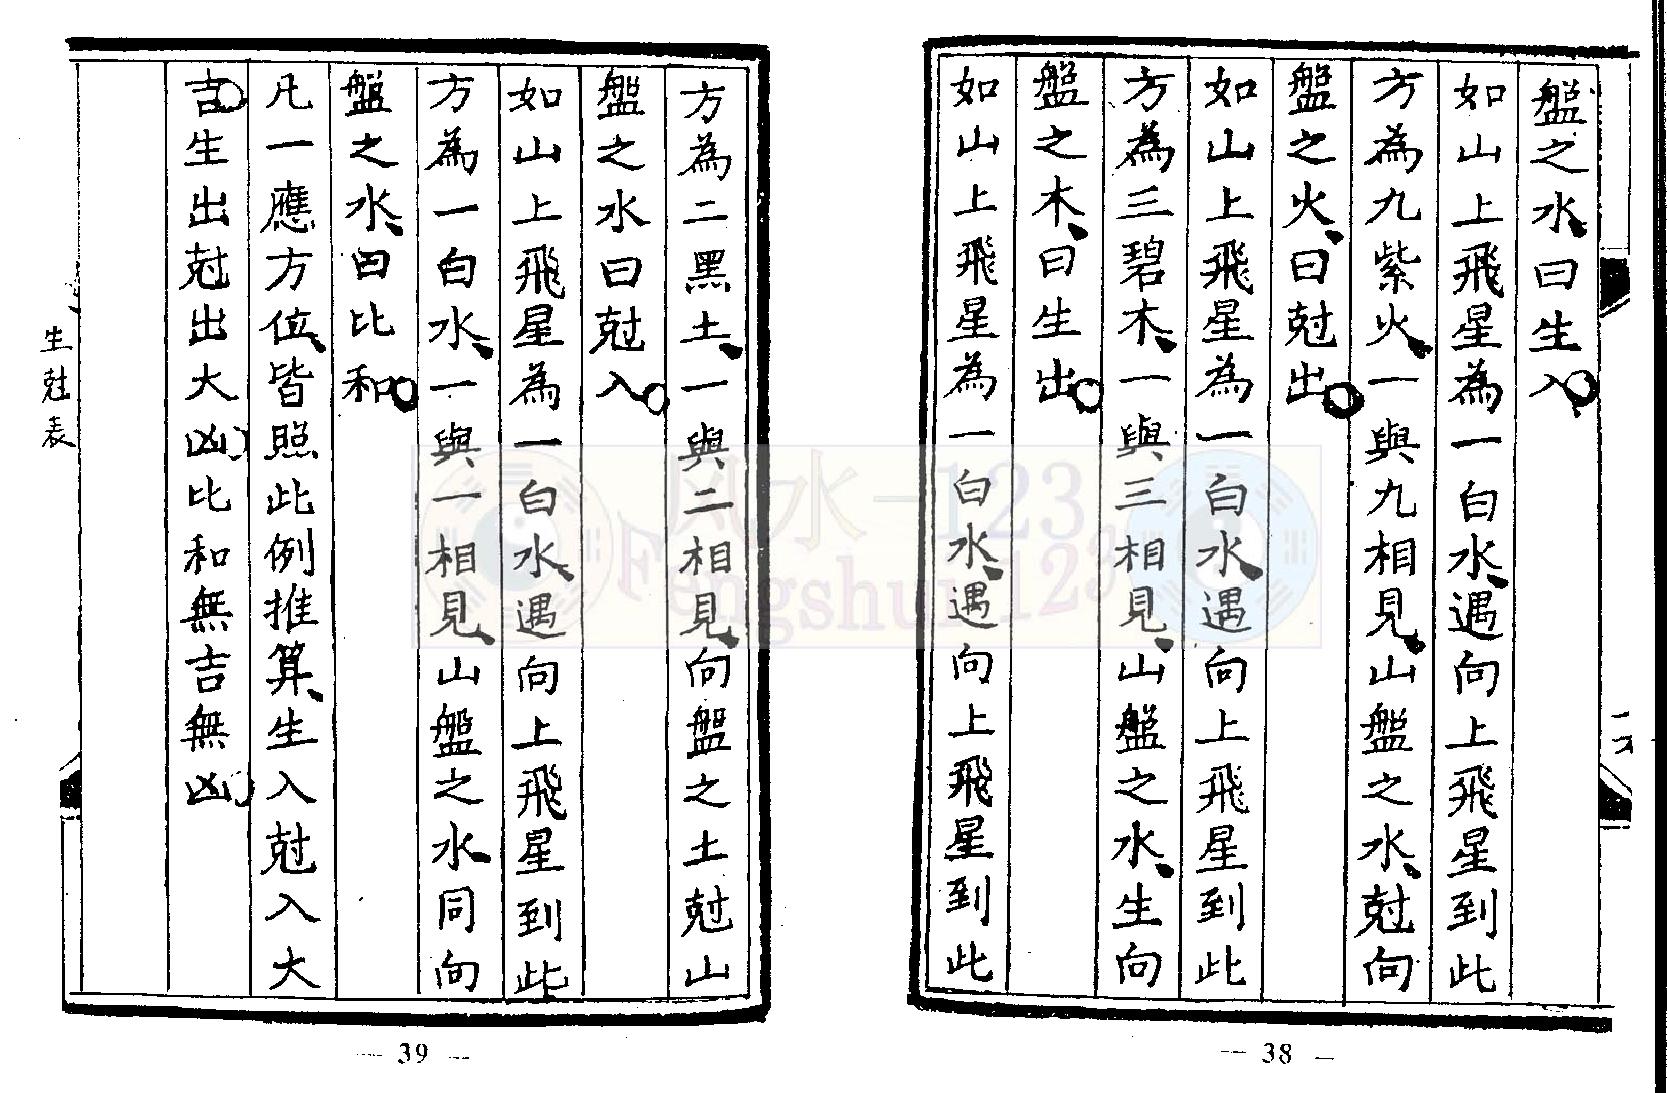 盤之水、曰生入。
如山上飛星為一白水、遇向上飛星到此
方為九紫火、一與九相見、山盤之水、尅向
盤之火、曰尅出。
如山上飛星為一白水、遇向上飛星到此
方為三碧木、一與三相見、山盤之水、生向
盤之木、曰生出。
如山上飛星為一白水、遇向上飛星到此
一六
— 38 —
方為二黑土、一與二相見、向盤之土尅山
盤之水曰尅入。
如山上飛星為一白水、遇向上飛星到此
方為一白水、一與一相見、山盤之水、同向
盤之水、曰比和。
凡一應方位、皆照此例推算、生入尅入大
吉。生出尅出大凶。比和無吉無凶。
生尅表
— 39 —
风水-123
Fengshui-123